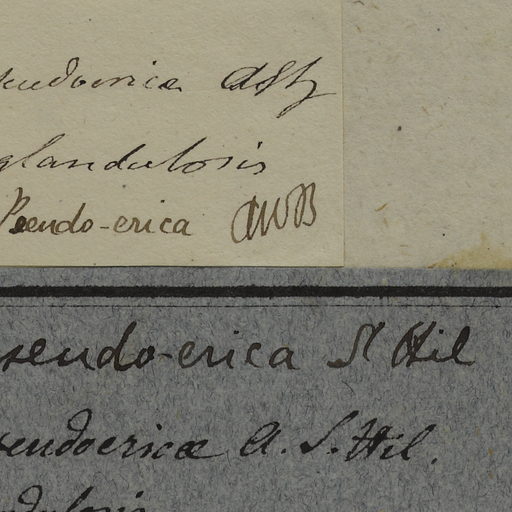 seudoericæ AStH
glandulosis
Pseudo-erica AWB
seudo-erica St Hil
seudoericæ A. S. Hil.
ndulosis